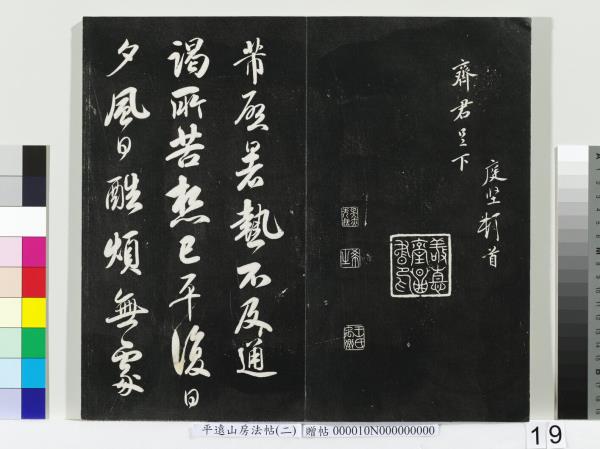 庭坚頓首
齊君足下
芾啓暑熱不及通
謁所苦想已平復日
夕風日酷煩無處
平遠山房法帖(二) 贈帖 000010N000000000
19